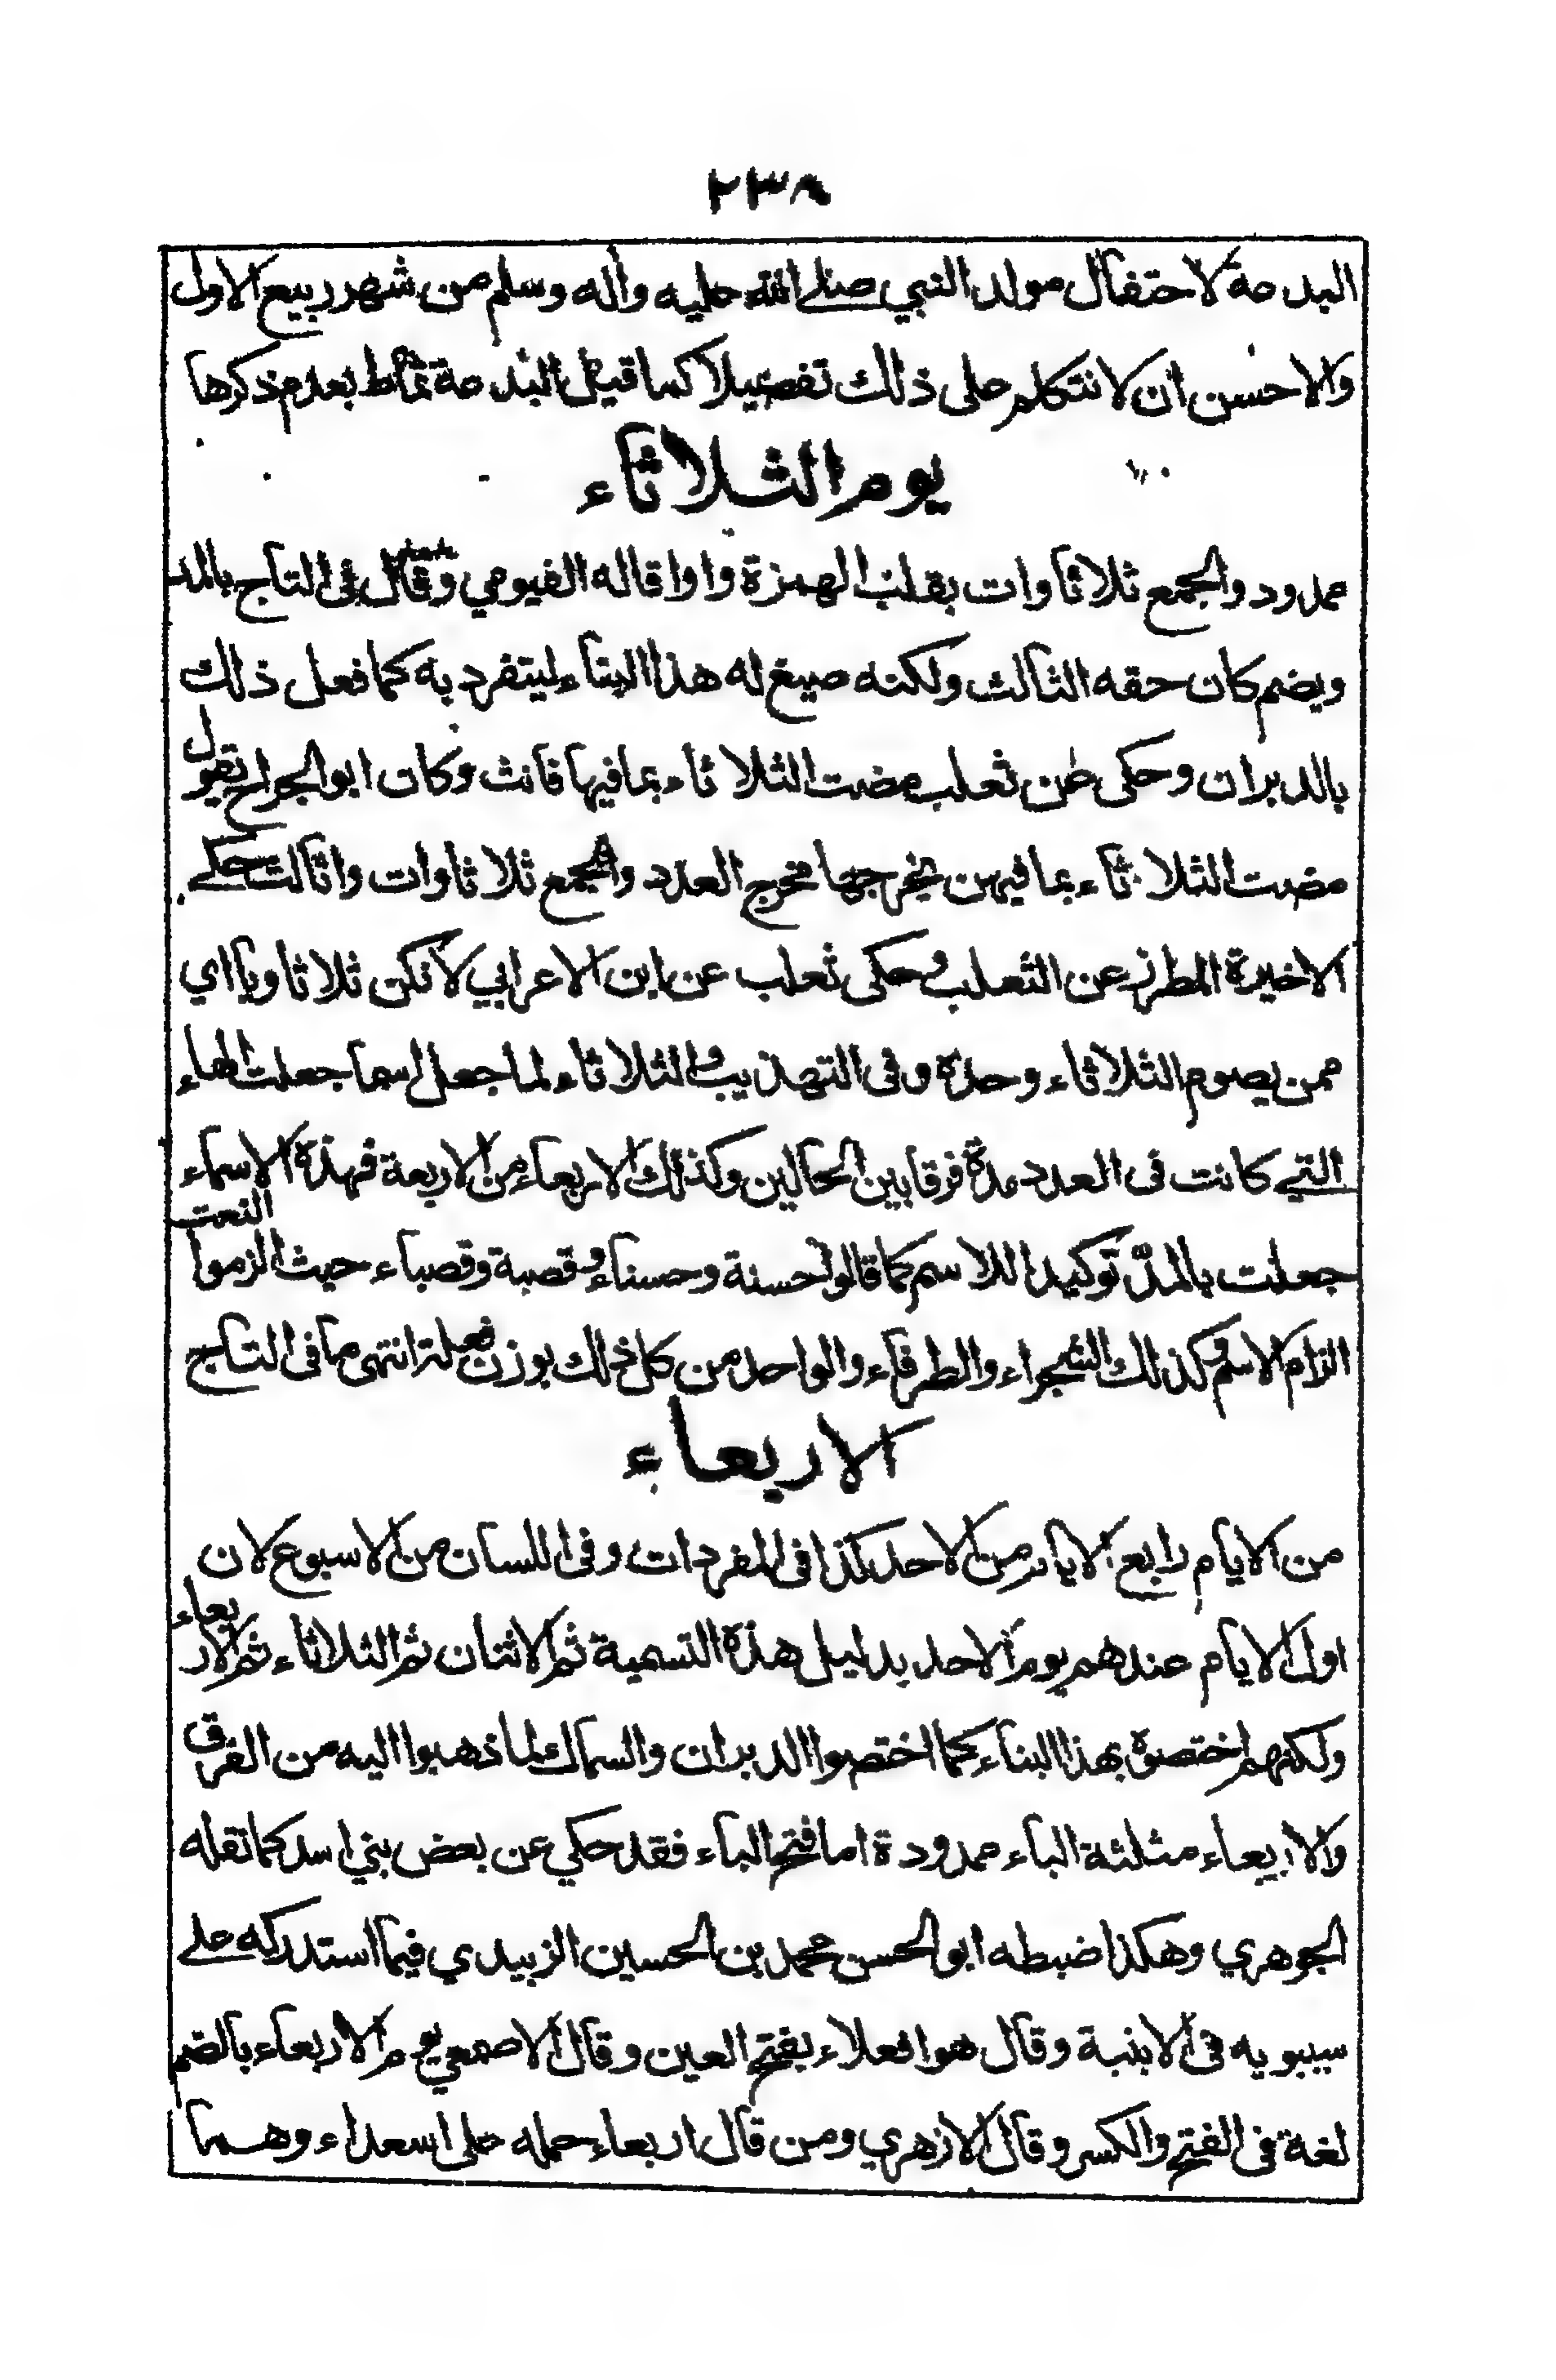 ٢٣٨
البدعة لاحتفال مولد النبي صلى الله عليه وأله وسلم من شهر ربيع الاول
والاحسن أن لا نتكلم على ذلك تفصيلا كما قيل البدعة تماط بعدم ذكرها
يوم الثلاثاء
ممدود والجمع ثلاثاوات بقلب الهمزة واوا قاله الفيومي وقال فى التاج بالمد
ويضم كان حقه الثالث ولكنه صيغ له هذا البناء ليتفرد به كما فعل ذلك
بالدبران وحكى عن ثعلب مضت الثلاثاء بما فيها فانث وكان ابو الجراح يقول
مضت الثلاثاء بما فيهن يخرجها مخرج العدد والجمع ثلاثاوات واثالث حكى
الاخيرة المطرزي عن الثعلب وحكى ثعلب عن ابن الاعرابي لا تكن ثلاثاويا اي
ممن يصوم الثلاثاء وحده وفى التهذيب والثلاثاء لما جعل اسما جعلت الهاء
التي كانت فى العدد مدة فرقا بين الحالين وكذلك الاربعاء من الاربعة فهذه الاسماء
جعلت بالمدّ توكيدا للاسم كما قالوا حسنة وحسناء وقصبة وقصباء حيث الزموا النعت
الزام الاسم وكذلك الشجراء والطرفاء والواحد من كل ذلك بوزن فعلة انتهى ما فى التاج
الاربعاء
من الايام رابع الايام من الاحد كذا فى المفردات وفى اللسان من الاسبوع لان
اول الايام عندهم يوم الاحد بدليل هذه التسمية ثم الاثنان ثم الثلاثاء ثم الاربعاء
ولكنهم اختصوة بهذا البناء كما اختصوا الدبران والسماك لما ذهبوا اليه من الفرق
والاربعاء مثلثة الباء ممدودة اما فتح الباء فقد حكي عن بعض بني اسد كما نقله
الجوهري وهكذا ضبطه ابو الحسن محمد بن الحسين الزبيدي فيما استدركه على
سيبويه فى الابنية وقال هو افعلاء بفتح العين وقال الاصمعي يوم الاربعاء بالضم
لغة فى الفتح والكسر وقال الازهري ومن قال اربعاء حمله على اسعداء وهما